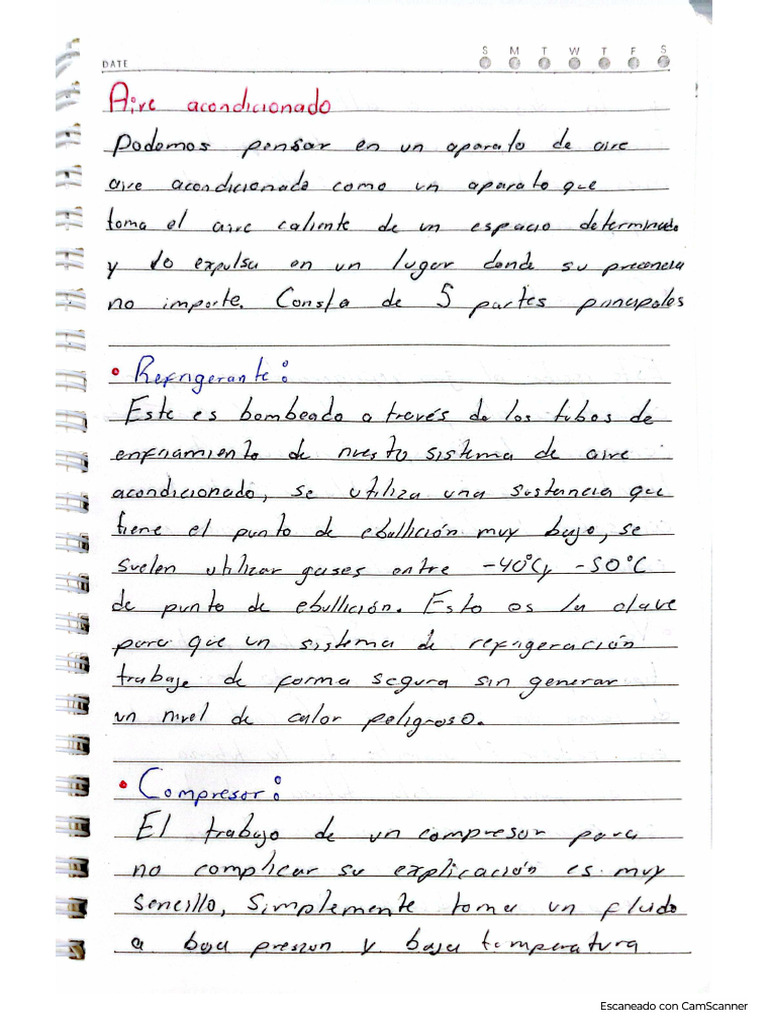 DATE
S M T W T F S
Aire acondicionado
Podemos pensar en un aparato de aire
aire acondicionado como un aparato que
toma el aire caliente de un espacio determinado
y lo expulsa en un lugar donde su precencia
no importe. Consta de 5 partes principales
• Refrigerante:
Este es bombeado a través de los tubos de
enfriamiento de nuestro sistema de aire
acondicionado, se utiliza una sustancia que
tiene el punto de ebullición muy bajo, se
suelen utilizar gases entre -40°C y -50°C
de punto de ebullición. Esto es la clave
para que un sistema de refrigeración
trabaje de forma segura sin generar
un nivel de calor peligroso.
• Compresor:
El trabajo de un compresor para
no complicar su explicación es muy
sencillo, simplemente toma un fluido
a baja presion y baja temperatura
Escaneado con CamScanner